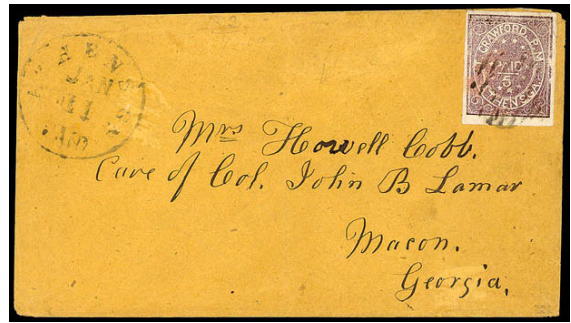 CRAWFORD, P.M.
PAID
5
ATHENS GA.
Mrs Howell Cobb.
Care of Col. John B Lamar
Macon.
Georgia.